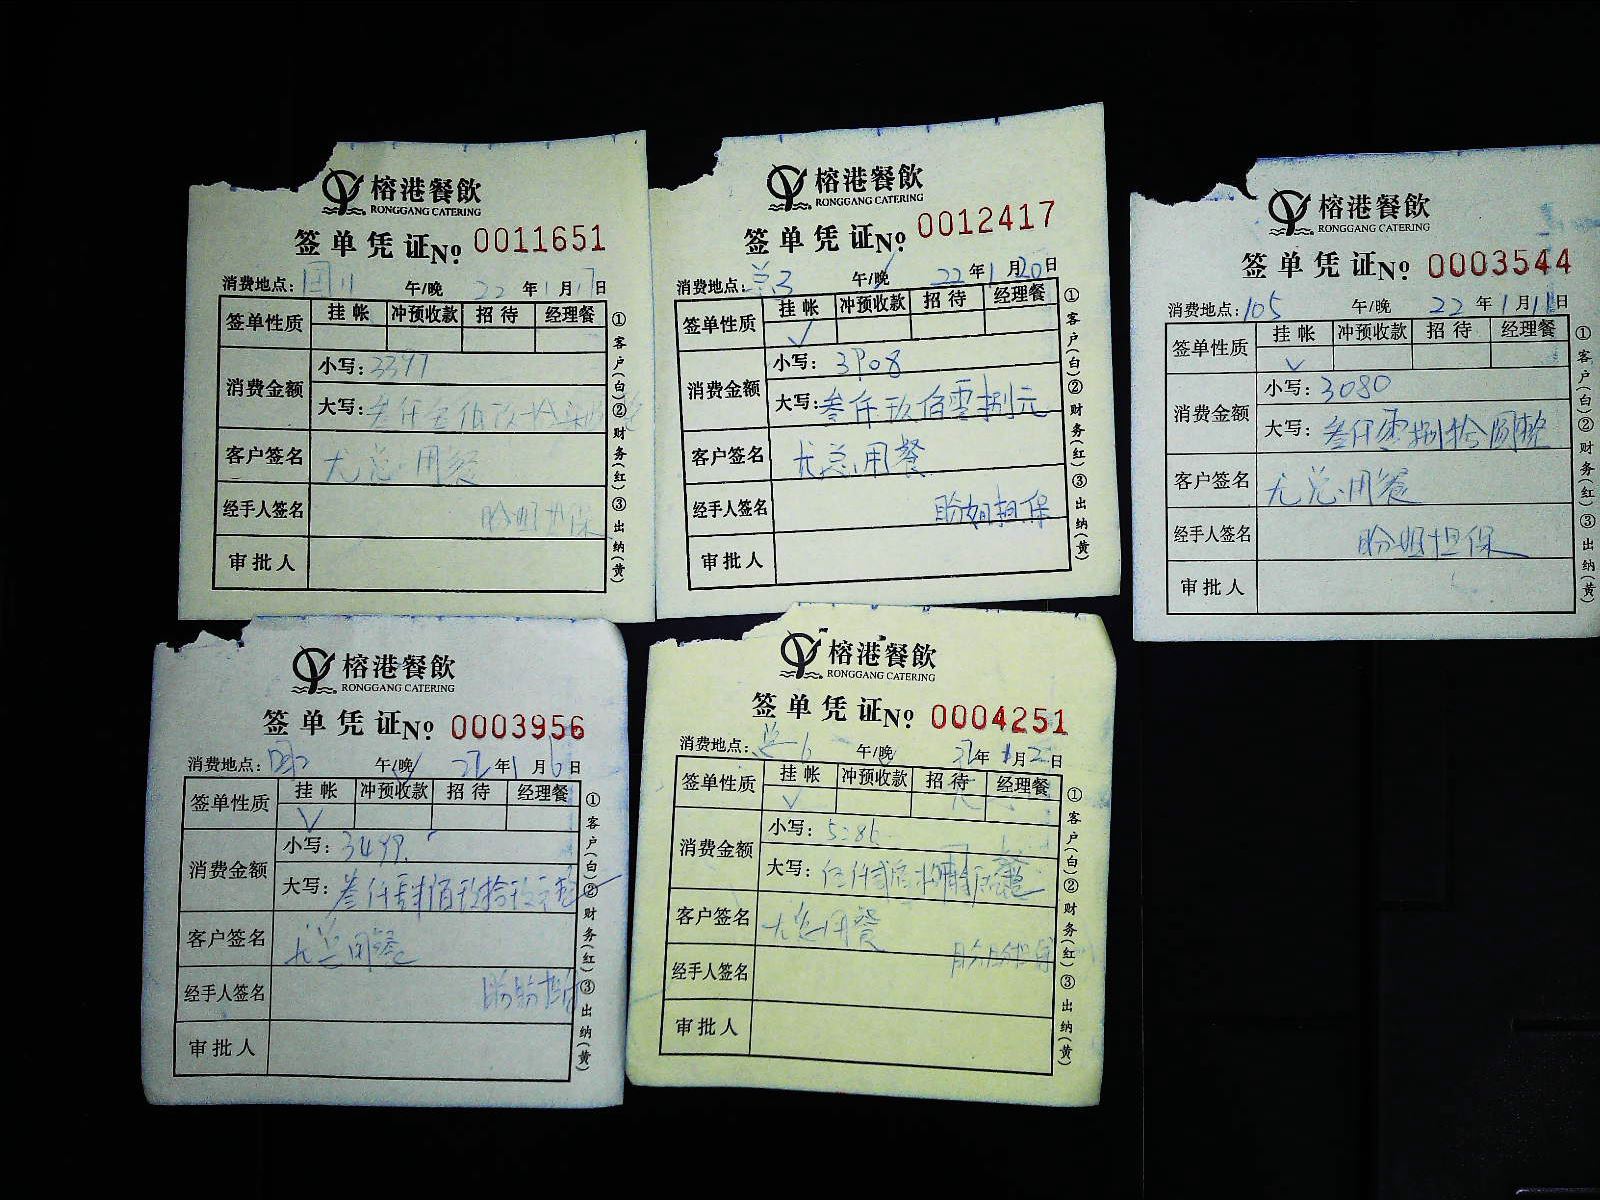 榕港餐飲
RONGGANG CATERING
签单凭证 No 0011651
消费地点: 午/晚 22年1月17日
签单性质 挂帐 冲预收款 招待 经理餐
消费金额 小写: 3397
大写: 叁仟叁佰玖拾柒
客户签名 尤总用餐
经手人签名 盼姐担保
审批人
①客户(白)②财务(红)③出纳(黄)
榕港餐飲
RONGGANG CATERING
签单凭证 No 0012417
消费地点: 午/晚 22年1月20日
签单性质 挂帐 冲预收款 招待 经理餐
✓
消费金额 小写: 3908
大写: 叁仟玖佰零捌元
客户签名 尤总用餐
经手人签名 盼姐担保
审批人
①客户(白)②财务(红)③出纳(黄)
榕港餐飲
RONGGANG CATERING
签单凭证 No 0003544
消费地点: 105 午/晚 22年1月 日
签单性质 挂帐 冲预收款 招待 经理餐
✓
消费金额 小写: 3080
大写: 叁仟零捌拾圆整
客户签名 尤总用餐
经手人签名 盼姐担保
审批人
①客户(白)②财务(红)③出纳(黄)
榕港餐飲
RONGGANG CATERING
签单凭证 No 0003956
消费地点: 午/晚 年1月6日
签单性质 挂帐 冲预收款 招待 经理餐
✓
消费金额 小写: 3499
大写: 叁仟肆佰玖拾玖元整
客户签名 尤总用餐
经手人签名
审批人
①客户(白)②财务(红)③出纳(黄)
榕港餐飲
RONGGANG CATERING
签单凭证 No 0004251
消费地点: 午/晚 年1月2日
签单性质 挂帐 冲预收款 招待 经理餐
✓
消费金额 小写: 5286
大写: 伍仟贰佰
客户签名 尤总用餐
经手人签名
审批人
①客户(白)②财务(红)③出纳(黄)